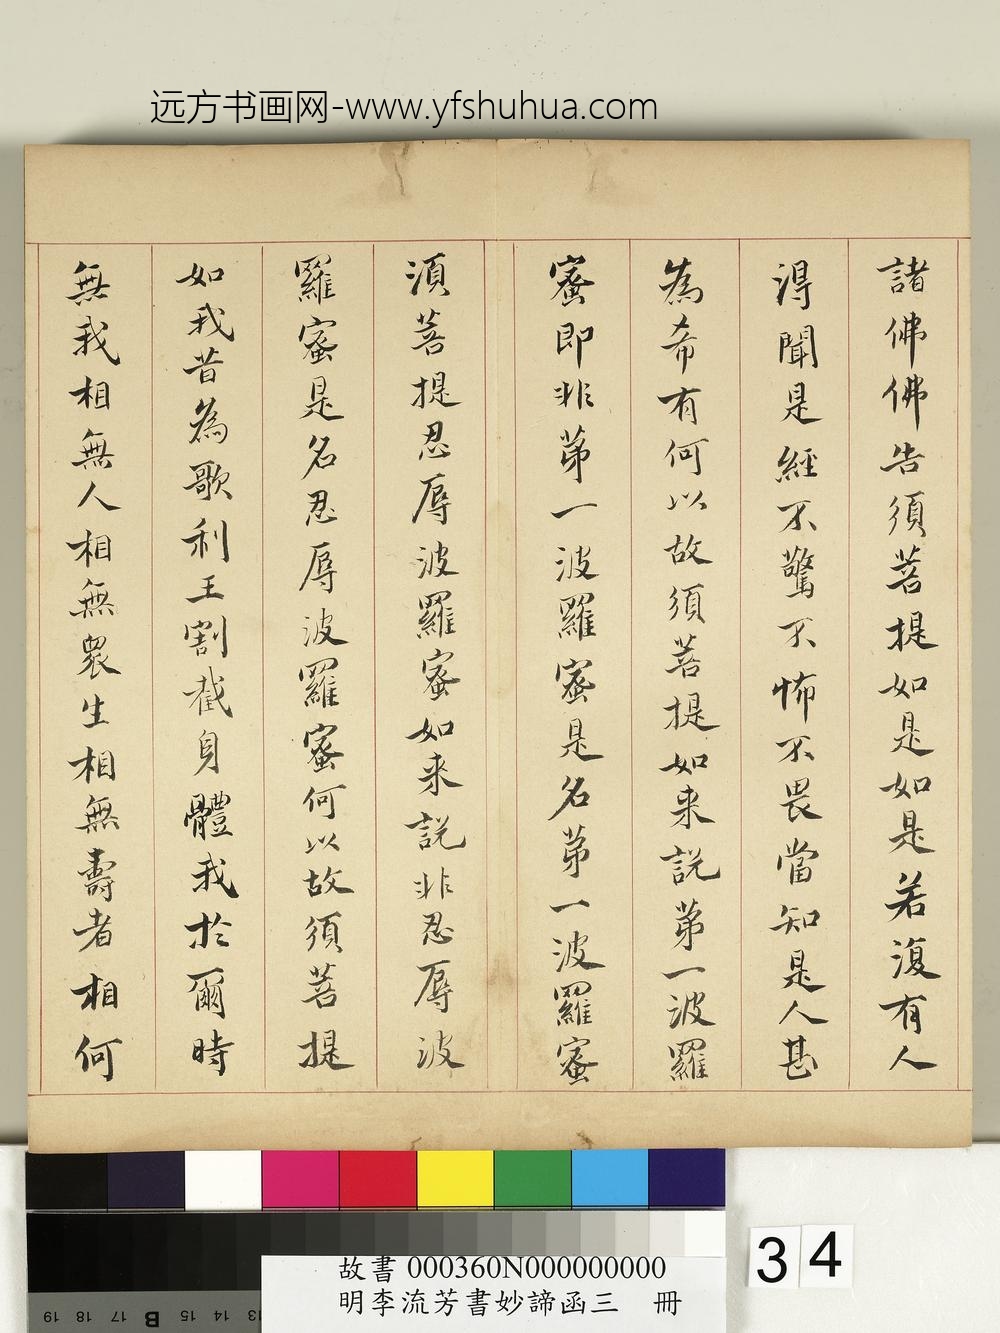 远方书画网-www.yfshuhua.com
諸佛佛告須菩提如是如是若復有人
得聞是經不驚不怖不畏當知是人甚
為希有何以故須菩提如来説苐一波羅
蜜即非苐一波羅蜜是名苐一波羅蜜
須菩提忍辱波羅蜜如来説非忍辱波
羅蜜是名忍辱波羅蜜何以故須菩提
如我昔為歌利王割截身體我於爾時
無我相無人相無衆生相無壽者相何
34
故書 000360N000000000
明李流芳書妙諦函三 冊
19 18 17 B 15 14 13